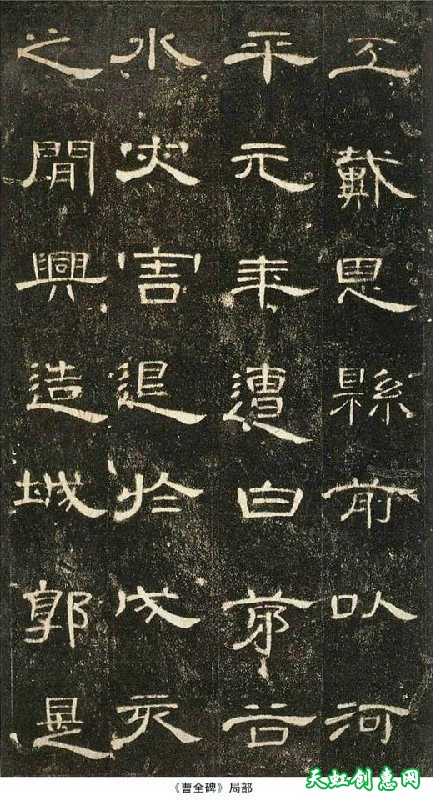 工戴恩縣前以河
平元年遭白茅谷
水災害退於戌亥
之閒興造城郭是
《曹全碑》局部
天虹创意网